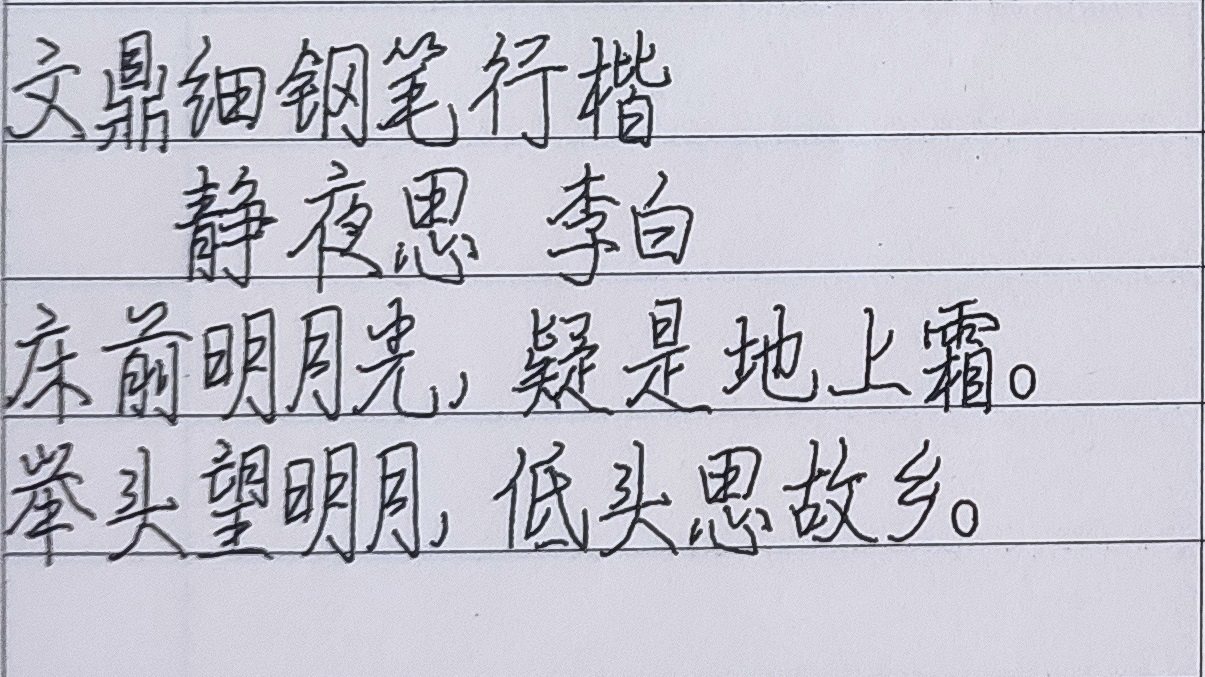 文鼎细钢笔行楷
静夜思 李白
床前明月光，疑是地上霜。
举头望明月，低头思故乡。